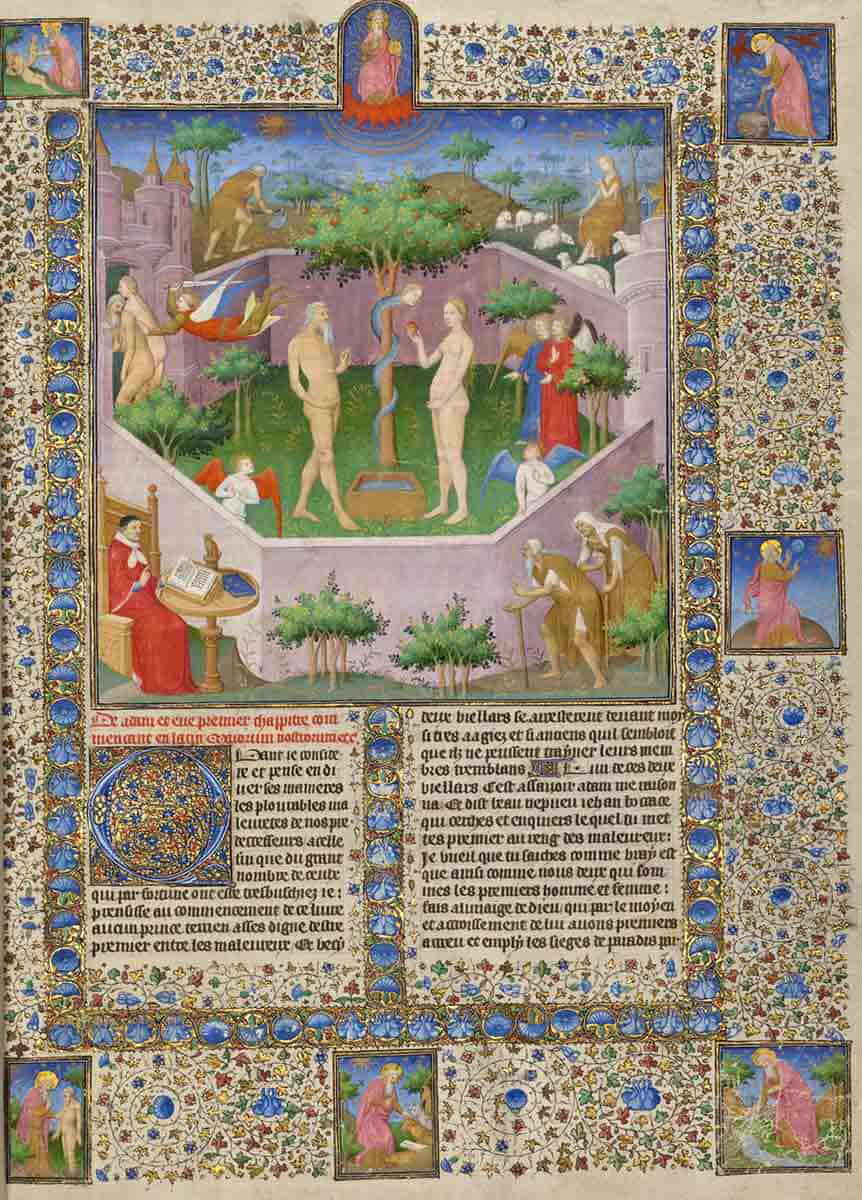 De adam et eue premier chappitre com
mencant en latin Maiorum nostrorum etc
Quant ie conside
re et pense en di
uerses manieres
les plourables ma
leuretes de nos pre
decesseurs a celle
fin que du grant
nombre de ceulx
qui par fortune ont este tresbuschiez ie:
prensisse au commencement de ce liure
aucun prince terrien asses digne destre
premier entre les maleureux Et vecy
deux viellars se aresterent deuant moy
si tres aagiez et si anciens quil sembloit
que ilz ne peussent trayner leurs mem
bres tremblans Lun de ces deux
viellars Cest assauoir adam me raison
na Et dist beau nepueu iehan bocace
qui cerches et enquiers le quel tu met
tes premier au reng des maleureux:
Je vueil que tu saches comme vray est
que ainsi comme nous deux qui som
mes les premiers homme et femme:
fais a limaige de dieu qui par le moyen
et de lui auons premiers
acreu et emply les sieges de paradis par